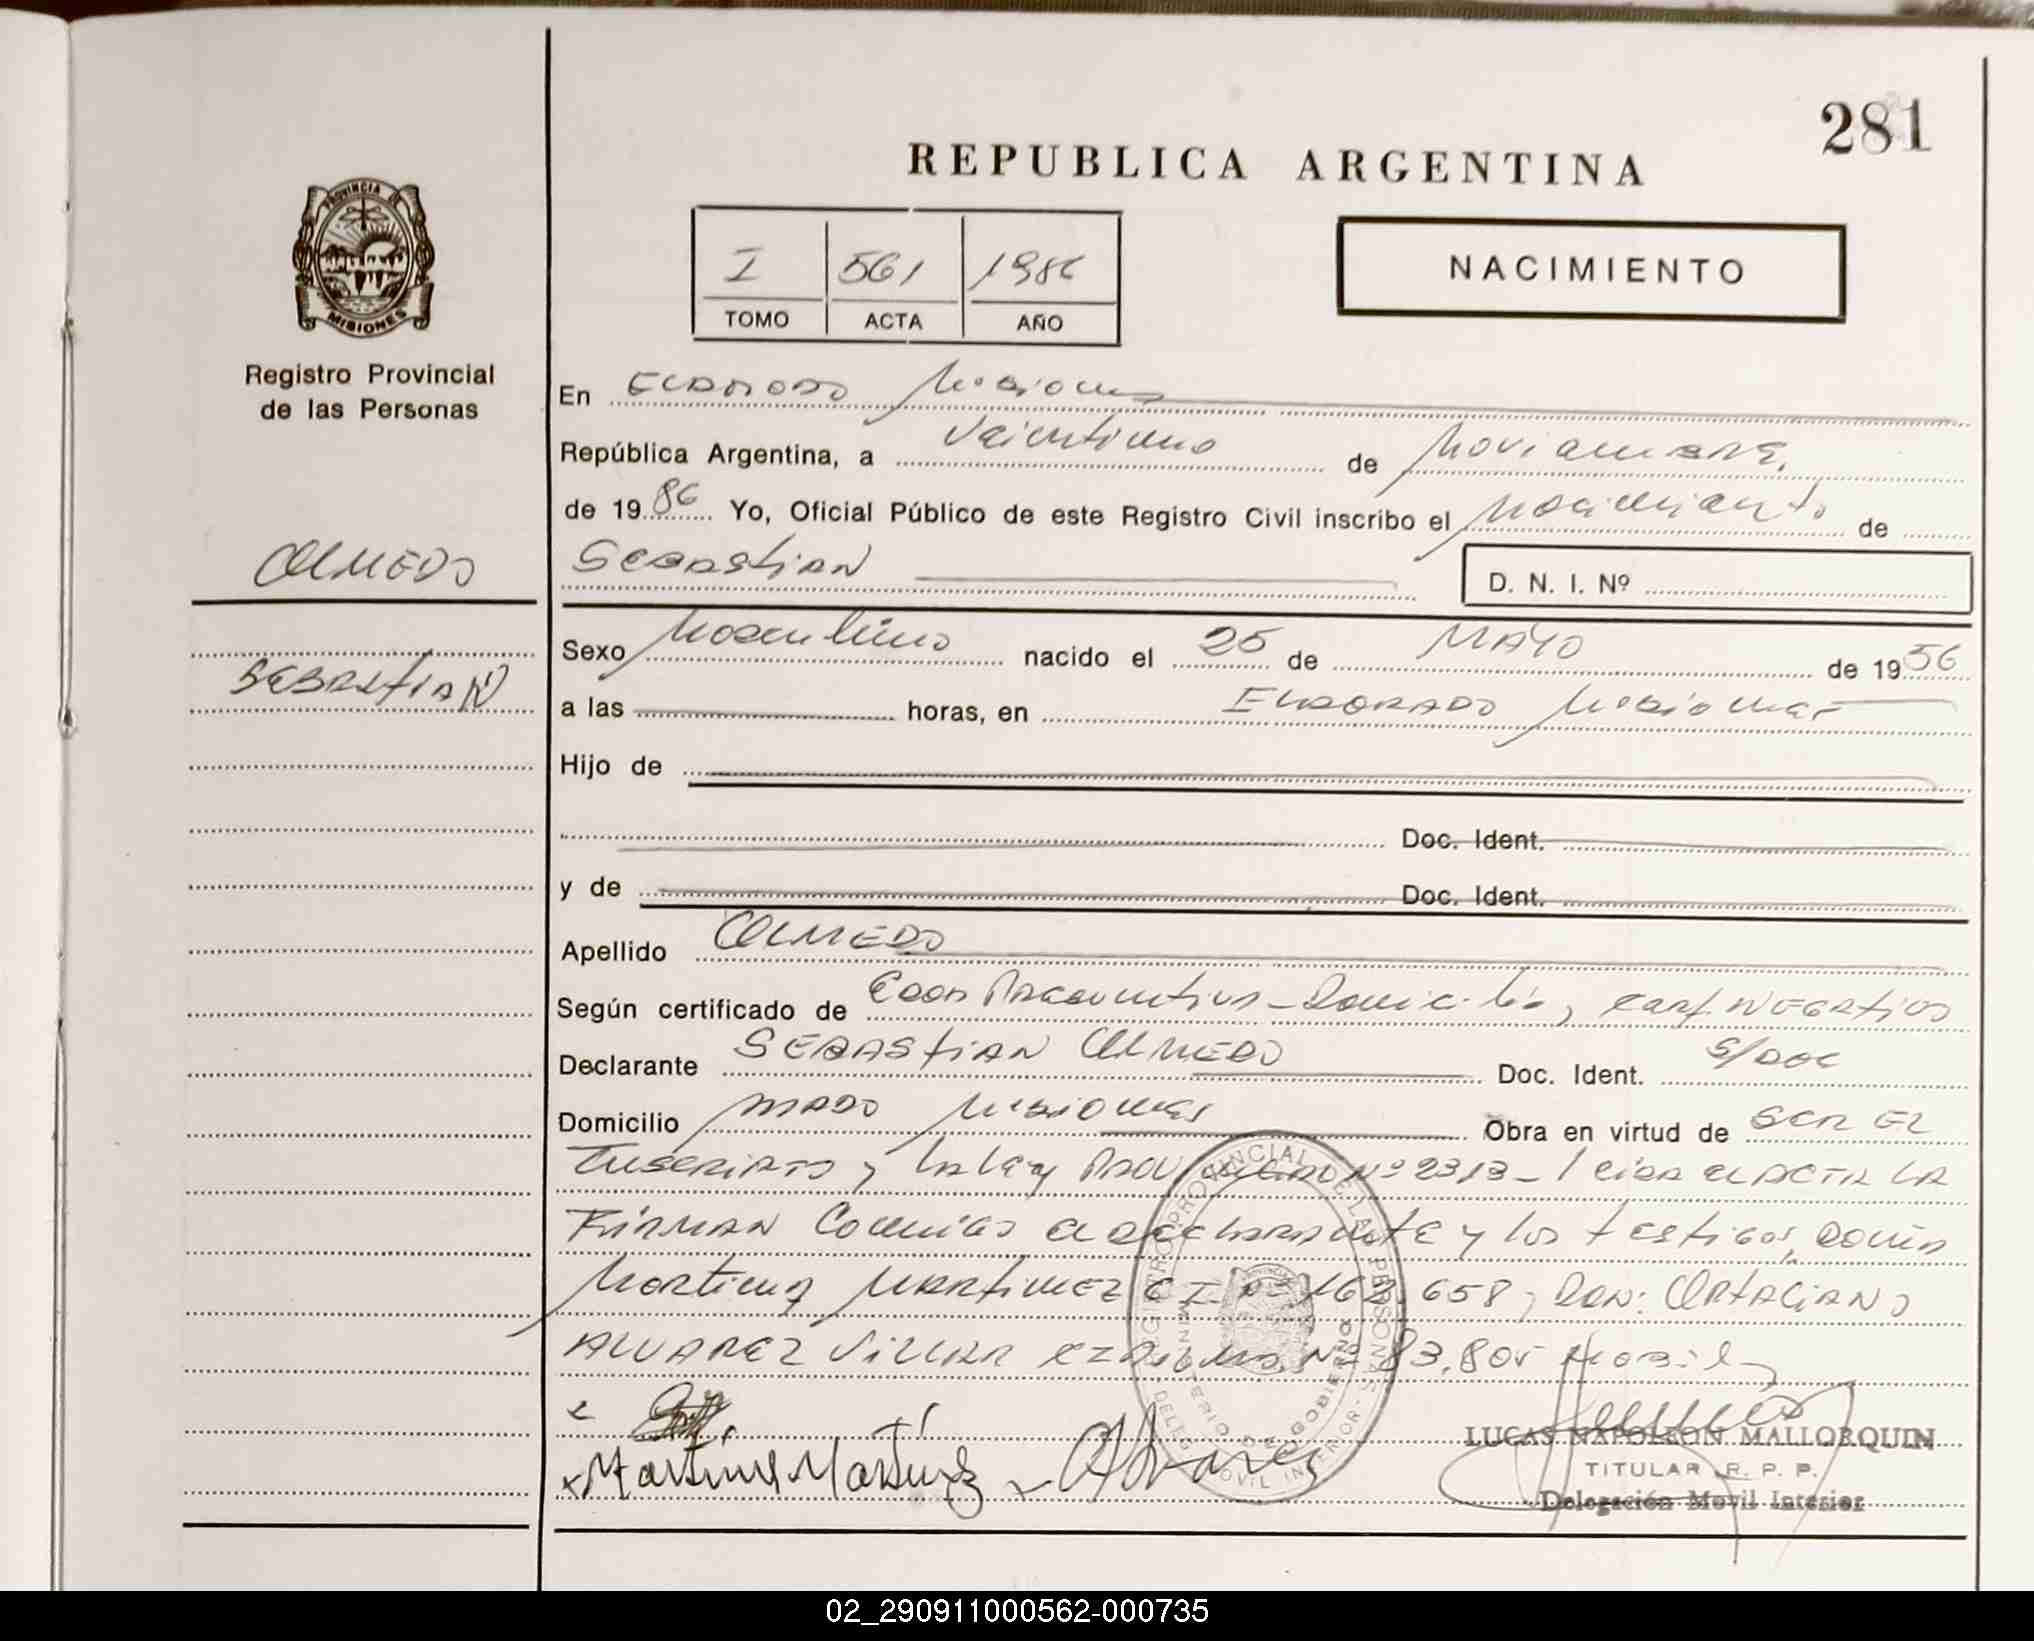 281
REPUBLICA ARGENTINA
PROVINCIA DE
MISIONES
I 561 1986
TOMO ACTA AÑO
NACIMIENTO
Registro Provincial
de las Personas
En ELDORADO Misiones
República Argentina, a Veintiuno de Noviembre
de 1986 Yo, Oficial Público de este Registro Civil inscribo el Nacimiento de
OLMEDO
SEBASTIAN
SEBASTIAN
D. N. I. Nº
Sexo Masculino nacido el 25 de MAYO de 1956
a las horas, en ELDORADO Misiones
Hijo de
Doc. Ident.
y de Doc. Ident.
Apellido OLMEDO
Según certificado de Edad Presuntiva - Domicilio, cert. NEGATIVO
Declarante SEBASTIAN OLMEDO Doc. Ident. S/DOC
Domicilio MADO Misiones Obra en virtud de SER EL
Inscripto y la Ley Nº 2313 - Leida el ACTA LA
FIRMAN Conmigo el declarante y los testigos, DOÑA
Martina MARTINEZ C I Nº 658, DON: ORTACIANO
ALVAREZ VILLAR Nº 83.805
Martina Martinez
Alvarez
REGISTRO PROVINCIAL DE LAS PERSONAS
MINISTERIO DE GOBIERNO
DELEG. MOVIL INTERIOR
LUCAS NAPOLEON MALLORQUIN
TITULAR R. P. P.
Delegación Movil Interior
02_290911000562-000735